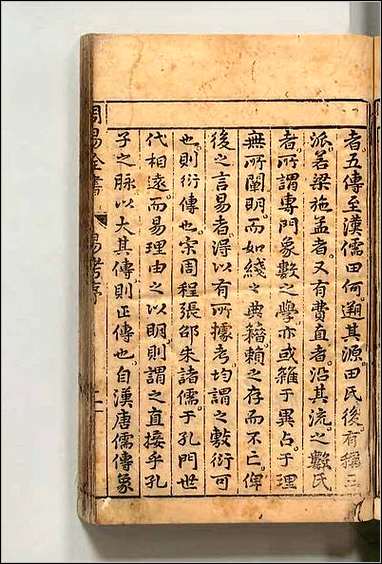 者五傳至漢儒田何遡其源田氏後有稱三
派若梁施孟者又有費直者沿其流之數氏
者所謂專門象數之學亦或雜于異占于理
無所闡明而如綫之典籍賴之存而不亡俾
後之言易者得以有所據考均謂之敷衍可
也則衍傳也宋周程張邵朱諸儒于孔門世
代相遠而易理由之以明則謂之直接乎孔
子之脉以大其傳則正傳也自漢唐儒傳象
周易全書 易考序 二